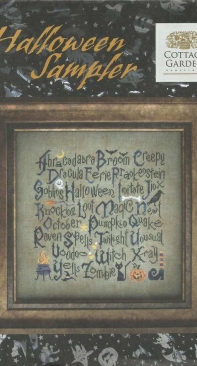 Halloween
Sampler
COTTAGE
GARDEN
Abracadabra Broom Creepy
Dracula Eerie Frankenstein
Goblins Halloween Imitate Jinx
Knocking Loot Magic Newt
October Pumpkin Quake
Raven Spells Tonight Unusual
Voodoo Witch X-ray
Yells Zombie